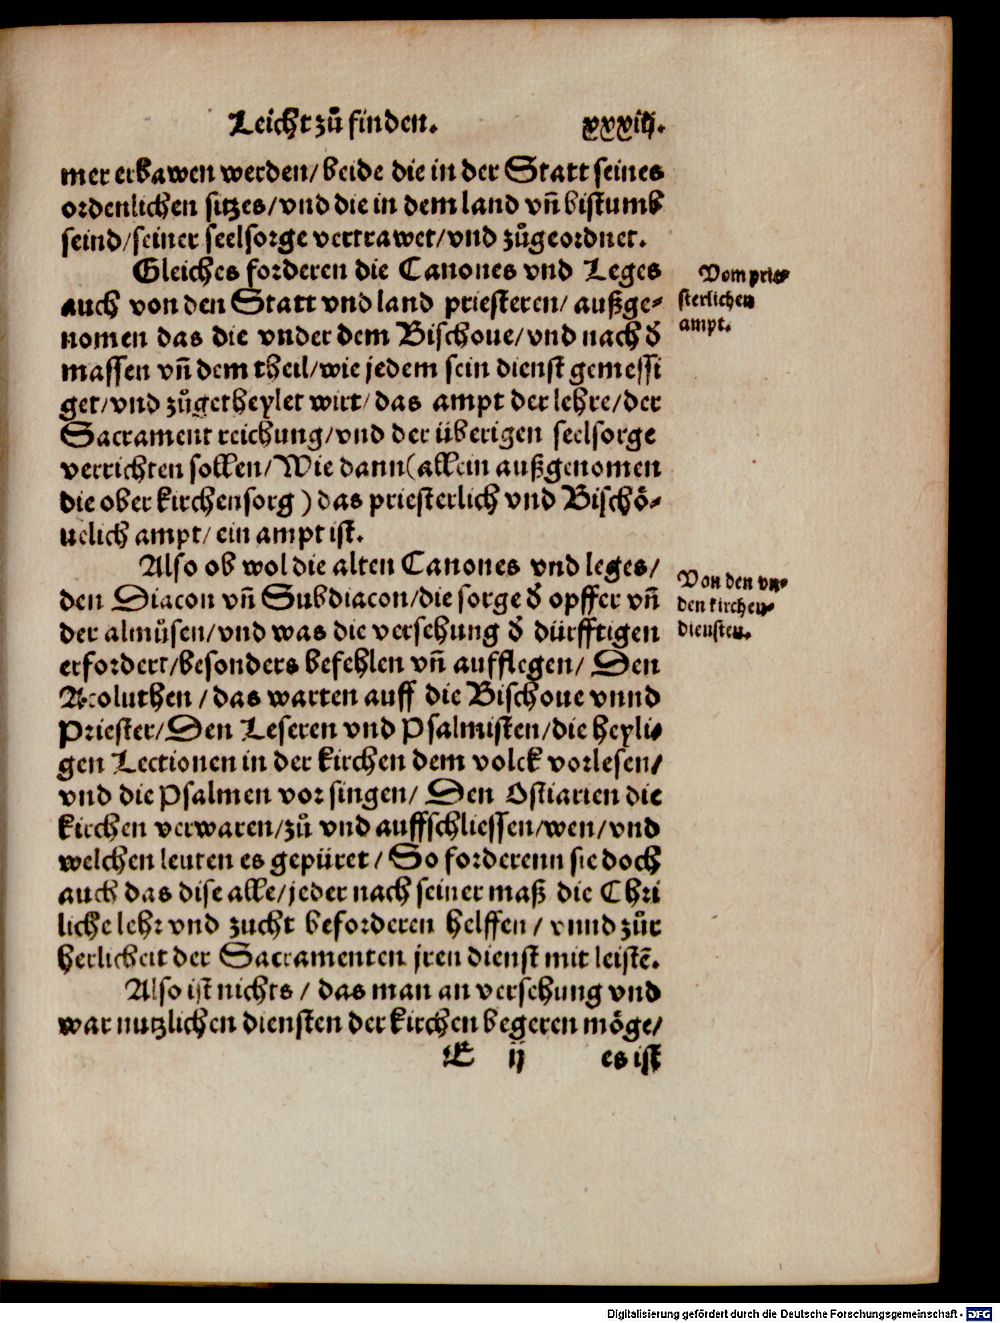 Leicht zů finden. xxxiij.
mer erbawen werden/beide die in der Statt seines
ordenlichen sitzes/vnd die in dem land vñ bistumb
seind/seiner seelsorge vertrawet/vnd zůgeordnet.
Gleiches forderen die Canones vnd Leges
auch von den Statt vnd land priesteren/ außge-
nomen das die vnder dem Bischoue/vnd nach d̕
massen vñ dem theil/wie jedem sein dienst gemessi
get/vnd zůgetheylet wirt/das ampt der lehre/der
Sacrament reichung/vnd der überigen seelsorge
verrichten sollen/Wie dann(allein außgenomen
die ober kirchensorg)das priesterlich vnd Bischö-
uelich ampt/ein ampt ist.
Vom prie-
sterlichen
ampt.
Also ob wol die alten Canones vnd leges/
den Diacon vñ Subdiacon/die sorge d̕ opffer vñ
der almůsen/vnd was die versehung d̕ dürfftigen
erfordert/besonders befehlen vñ aufflegen/ Den
Acoluthen/das warten auff die Bischoue vnnd
Priester/Den Leseren vnd Psalmisten/die heyli-
gen Lectionen in der kirchen dem volck vorlesen/
vnd die Psalmen vor singen/ Den Ostiarien die
kirchen verwaren/zů vnd auffschliessen/wen/vnd
welchen leuten es gepüret/So forderenn sie doch
auch das dise alle/jeder nach seiner maß die Chri
liche lehr vnd zucht beforderen helffen/ vnnd zůr
herlicheit der Sacramenten jren dienst mit leistẽ.
Von den vn-
den kirchen-
diensten.
Also ist nichts/ das man an versehung vnd
war nutzlichen diensten der kirchen begeren möge/
E ij es ist
Digitalisierung gefördert durch die Deutsche Forschungsgemeinschaft - DFG